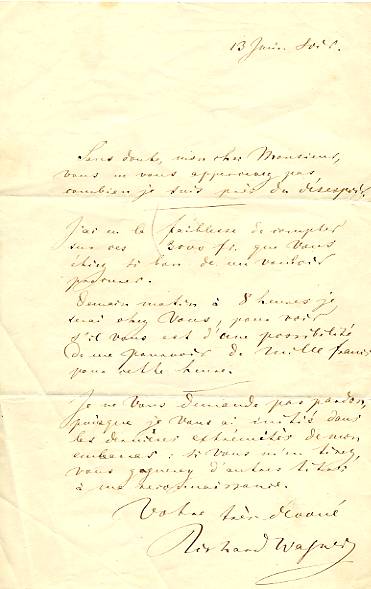 13 Juin soir.
Sans doute, mon cher Monsieur,
vous ne vous apercevez pas
combien je suis près du désespoir.
J'ai eu la faiblesse de compter
sur ces 3000 fr. que Vous
étiez si bon de me vouloir
procurer.
Demain matin à 8 heures je
serai chez Vous, pour voir
s'il vous est d'une possibilité
de me pourvoir de mille francs
pour cette heure.
Je ne Vous demande pas pardon,
puisque je vous ai initié dans
les derniers extrémités de mon
embarras : si vous m'en tirez,
vous gagnez d'autres titres
à ma reconnaissance.
Votre très dévoué
Richard Wagner